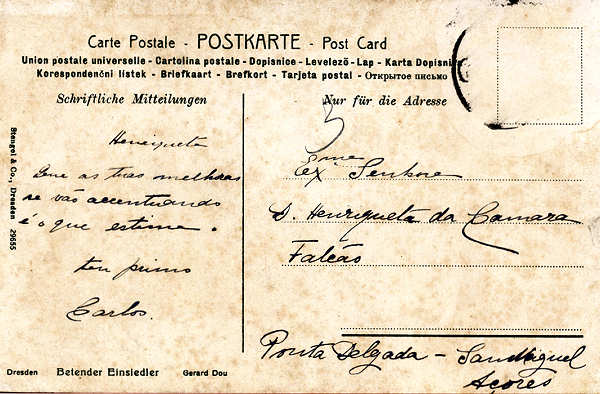 Carte Postale - POSTKARTE - Post Card
Union postale universelle - Cartolina postale - Dopisnice - Levelező-Lap - Karta Dopisni
Korespondenční lístek - Briefkaart - Brefkort - Tarjeta postal - Открытое письмо
Schriftliche Mitteilungen
Nur für die Adresse
Henriqueta
Que as tuas melhoras
se vão accentuando
é o que estima.
teu primo
Carlos.
Exma Senhora
D. Henriqueta da Camara
Falcão
Ponta Delgada - San Miguel
Açores
Stengel & Co., Dresden 29655
Dresden Betender Einsiedler Gerard Dou